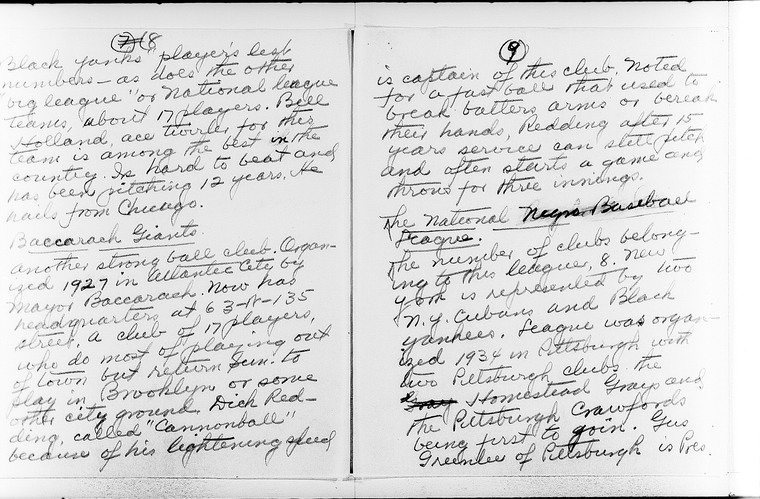 (7)(8
Black Yanks player's list
numbers - as does the other
"big league" or National league
teams, about 17 players. Bill
Holland, ace twirler for this
team is among the best in the
country. Is hard to beat and
has been pitching 12 years. He
hails from Chicago.
Baccarach Giants.
another strong ball club. Organ-
ized 1927 in Atlantic City by
Mayor Baccarach. Now has
headquarters at 63-W-135
street, a club of 17 players,
who do most of playing out
of town but return Sun. to
play in Brooklyn or some
other city ground. Dick Red-
ding, called "Cannonball"
because of his lightening speed
(9)
is captain of this club. Noted
for a fast ball that used to
break batters arms or bereak
their hands, Redding after 15
years service can still pitch
and often starts a game and
throws for three innings.
The National Negro Baseball
League.
The number of clubs belong-
ing to this league, 8. New
York is represented by two
N.Y. Cubans and Black
Yankees. League was organ-
ized 1934 in Pittsburgh with
two Pittsburgh clubs. the
Gray Homestead Grays and
the Pittsburgh Crawfords
being first to join. Gus
Greenlee of Pittsburgh is Pres.